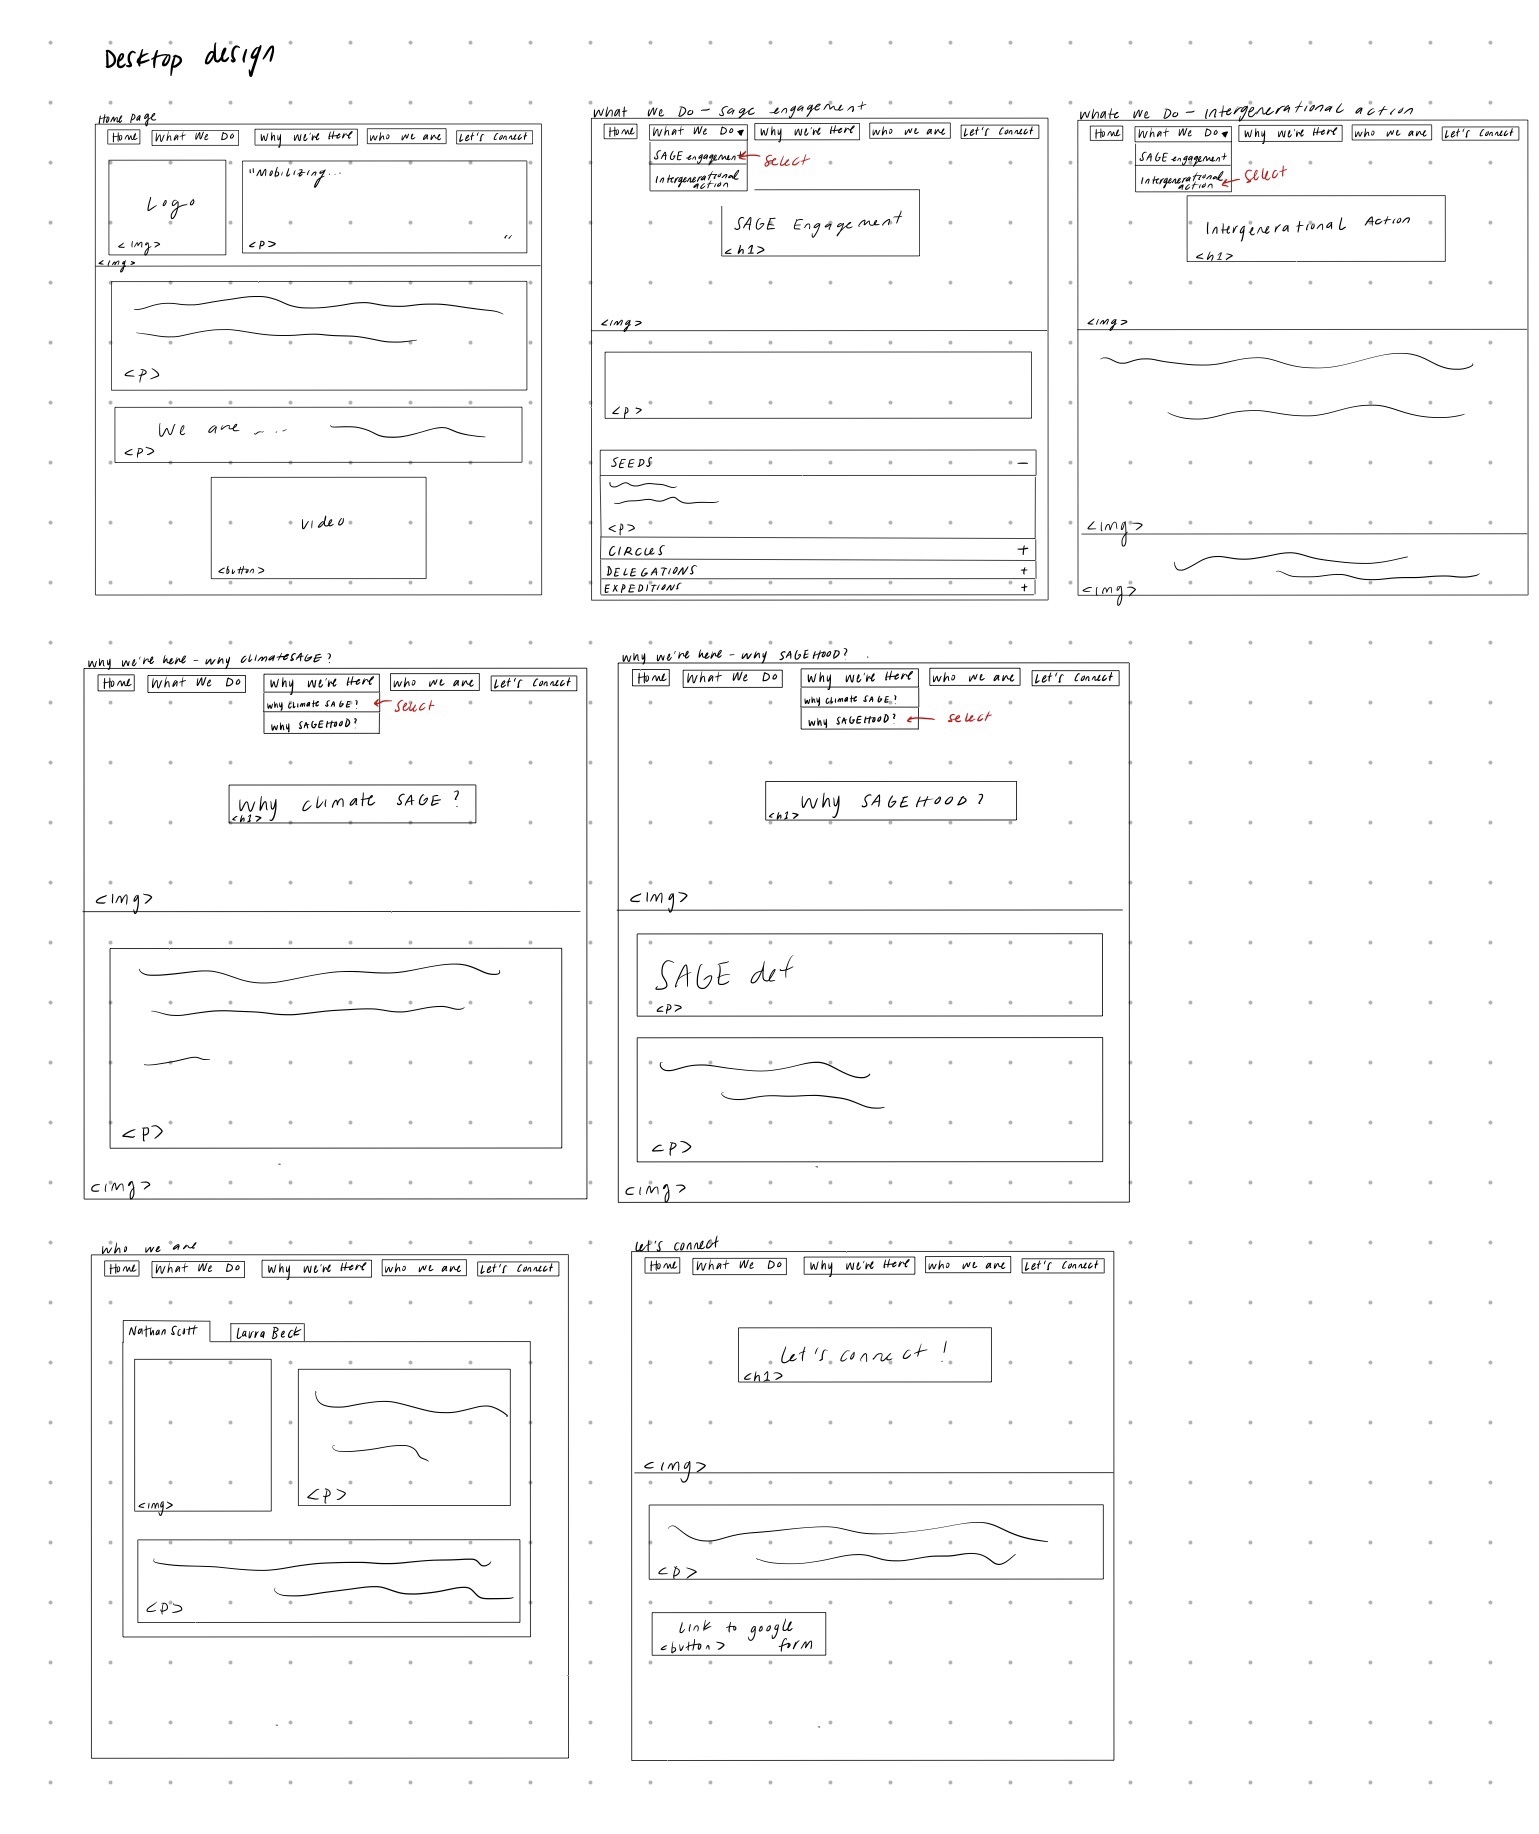 Desktop design
Home page
Home What We Do Why We're Here who we are Let's Connect
Logo
<img>
"Mobilizing...
"
<p>
<img>
<p>
We are ....
<p>
video
<button>
What We Do - Sage engagement
Home What We Do Why We're Here who we are Let's Connect
SAGE engagement select
Intergenerational
action
SAGE Engagement
<h1>
<img>
<p>
SEEDS -
<p>
CIRCLES +
DELEGATIONS +
EXPEDITIONS +
Whate We Do - Intergenerational action
Home What We Do Why We're Here who we are Let's Connect
SAGE engagement
Intergenerational
action select
Intergenerational Action
<h1>
<img>
<img>
<img>
why we're here - why climateSAGE?
Home What We Do Why We're Here who we are Let's Connect
why climate SAGE? select
why SAGEHOOD?
Why climate SAGE?
<h1>
<img>
<p>
<img>
why we're here - why SAGEHOOD?
Home What We Do Why We're Here who we are Let's Connect
why climate SAGE?
why SAGEHOOD? select
Why SAGEHOOD?
<h1>
<img>
SAGE def
<p>
<p>
<img>
who we are
Home What We Do Why We're Here who we are Let's Connect
Nathan Scott Laura Beck
<img>
<p>
<p>
let's connect
Home What We Do Why We're Here who we are Let's Connect
Let's connect!
<h1>
<img>
<p>
Link to google
<button> form